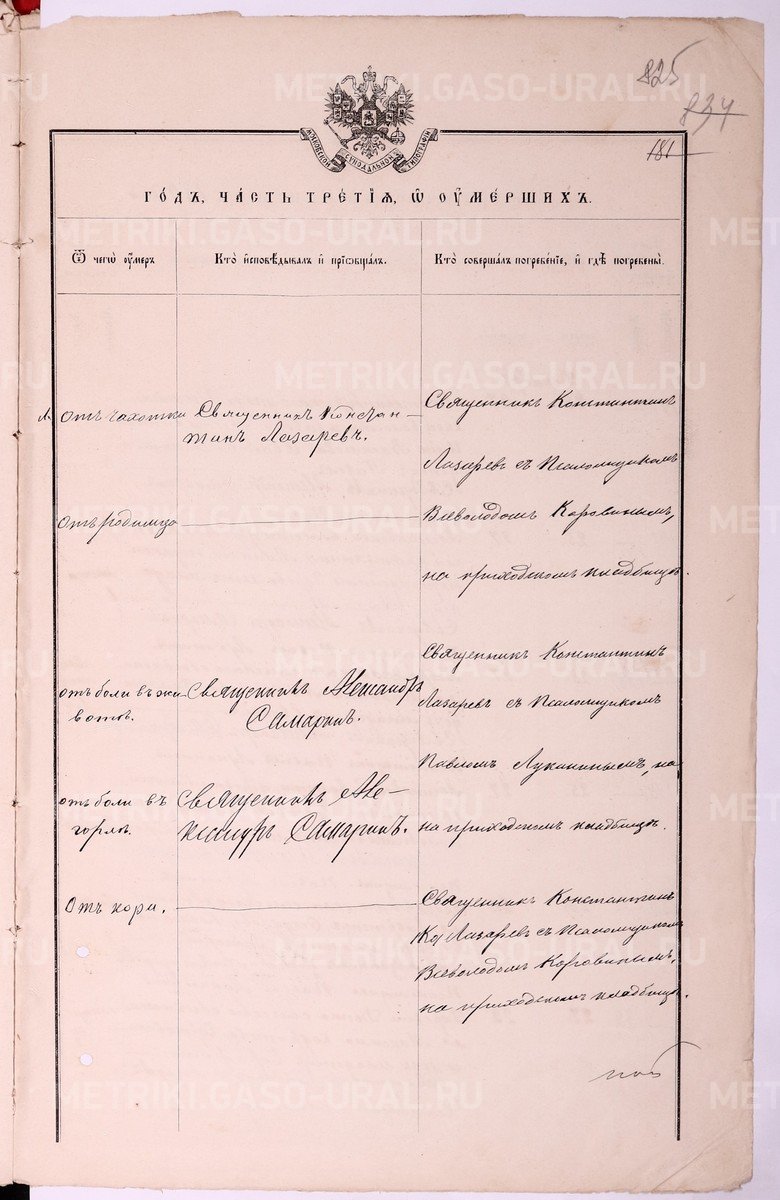 METRIKI.GASO-URAL.RU
825
834
181
МОСКОВСКОЙ СѴНОДАЛЬНОЙ ТИПОГРАФІИ
ГОДЪ, ЧАСТЬ ТРЕТІЯ, Ѡ ОУМЕРШИХЪ.
Ѿ чегѡ оумеръ
Кто исповѣдывалъ и пріобщалъ.
Кто совершалъ погребеніе, и гдѣ погребены.
отъ чахотки
Священникъ Констан-
тинъ Лазаревъ.
Священникъ Константинъ
Лазаревъ съ Псаломщикомъ
отъ родимца
Всеволодомъ Коровинымъ,
на приходскомъ кладбищѣ.
отъ боли въ жи-
вотѣ.
Священникъ Александръ
Самаринъ.
Священникъ Константинъ
Лазаревъ съ Псаломщикомъ
Павломъ Луканинымъ, на
отъ боли въ
горлѣ.
Священникъ Але-
ксандръ Самаринъ.
на приходскомъ кладбищѣ.
Отъ кори.
Священникъ Константинъ
Лазаревъ съ Псаломщикомъ
Всеволодомъ Коровинымъ,
на приходскомъ кладбищѣ.